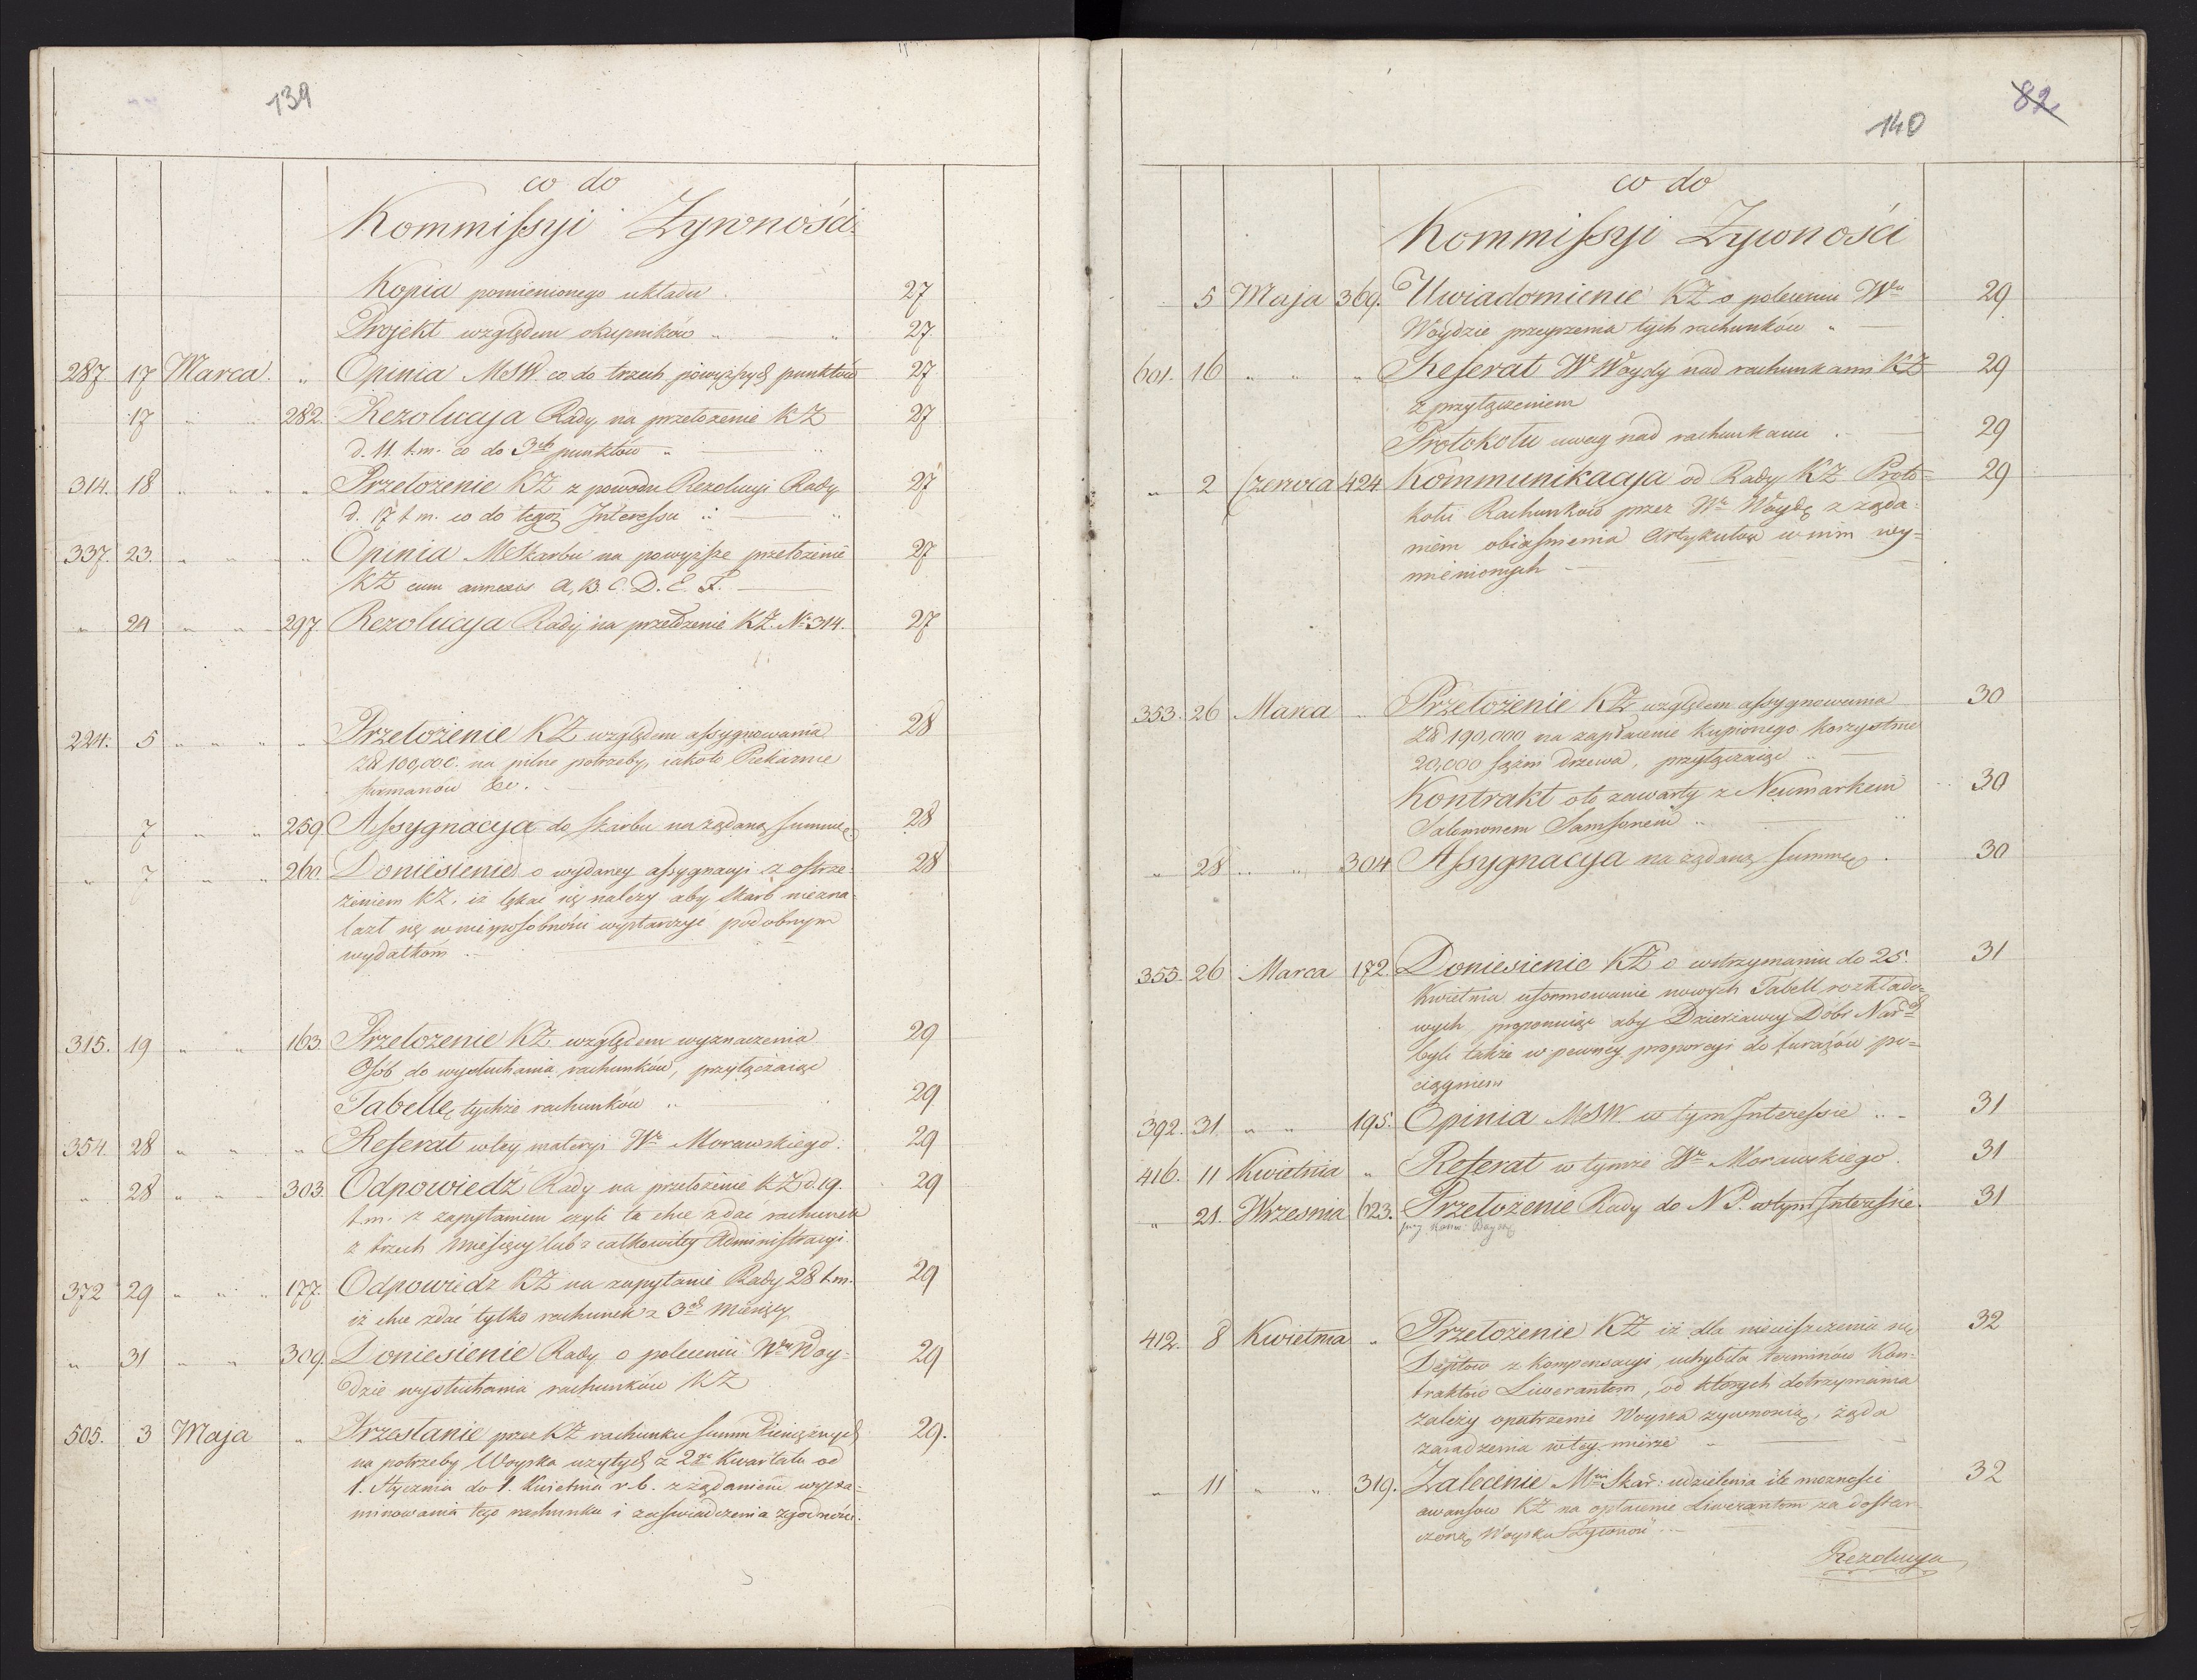 139
co do
Kommissyi Żywności
Kopia pomienionego układu 27
Projekt względem okupników " — " 27
287. 17 Marca. " Opinia MSW. co do trzech powyższych punktów 27
17 " " 282. Rezolucyja Rady na przełożenie KŻ 27
d. 11. t.m. co do 3ch punktów " — "
314. 18 " " " Przełożenie KŻ z powodu Rezolucyi Rady 27
d. 17 t.m. co do tegoż Interessu " — "
337. 23. " " " Opinia MSkarbu na powyższe przełożenie 27
KŻ cum annexis A, B. C. D. E. F. —
" 24 " " 297. Rezolucyja Rady na przełożenie KŻ. No 314. 27
224. 5 " " " Przełożenie KŻ względem assygnowania 28
Zł 100,000. na pilne potrzeby, iakoto Piekarnie
furmanów &c. —
7 " " 259 Assygnacyja do Skarbu na żądaną summę 28
" 7 " " 260. Doniesienie o wydaney assygnacyi z ostrze- 28
żeniem KŻ, iż lękać się należy aby Skarb niezna-
lazł się w niesposobności wystarczyć podobnym
wydatkom. —
315. 19 " " 163 Przełożenie KŻ względem wyznaczenia 29
Osób do wysłuchania rachunków, przyłączaiąc
Tabellę tychże rachunków " — 29
354. 28 " " " Referat w tey materyi Wo Morawskiego. 29
" 28 " " 303. Odpowiedź Rady na przełożenie KŻ d. 19. 29
t.m. z zapytaniem czyli ta chce zdać rachunek
z trzech Miesięcy lub z całkowitey Administracyi.
372 29 " " " 177. Odpowiedz KŻ na zapytanie Rady 28 t.m. 29
iż chce zdać tylko rachunek z 3ch Miesięcy
" 31 " " 309. Doniesienie Rady o poleceniu Wmu Woy- 29
dzie wysłuchania rachunków KŻ
505. 3 Maja " Przesłanie przez KŻ rachunku summ Pieniężnych 29.
na potrzeby Woyska użytych z 2go Kwartału od
1. Stycznia do 1. Kwietnia r.b. z żądaniem wyexa-
minowania tego rachunku i zaświadczenia zgodności.
82
140
co do
Kommissyi Żywności
5 Maja 369. Uwiadomienie KŻ o poleceniu Wmu 29
Woydzie przeyrzenia tych rachunków " —
601. 16 " " " Referat W Woydy nad rachunkami KŻ 29
z przyłączeniem
Protokołu uwag nad rachunkami . — 29
" 2 Czerwca 424 Kommunikacyja od Rady KŻ Proto- 29
kołu Rachunków przez Wo Woydę z żąda-
niem obiaśnienia Artykułów w nim wy-
mienionych —
353. 26 Marca " Przełożenie KŻ względem assygnowania 30
Zł 190,000 na zapłacenie kupionego korzystnie
20,000 sążni drzewa, przyłączaiąc "
Kontrakt oto zawarty z Neumarkem 30
Salomonem Samsonem " — "
" 28 " " 304 Assygnacyja na żądaną summę . 30
355. 26 Marca 172. Doniesienie KŻ o wstrzymaniu do 25. 31
Kwietnia uformowanie nowych Tabell rozkłado-
wych, proponuiąc aby Dzierżawcy Dóbr Narch
byli także w pewney proporcyi do furażów po-
ciągnieni
392. 31 " " 195. Opinia MSW. w tym Interessie " — 31
416. 11 Kwietnia " Referat w tymże Wo Morawskiego. 31
" 21. Wrzesnia 623. Przełożenie Rady do N P. w tym Interessie. 31
412. 8 Kwietnia " Przełożenie KŻ iż dla nieuiszczenia się 32
Deptow z kompensacyi, uchybiła terminów Kon-
traktów Liwerantom, od których dotrzymania
zależy opatrzenie Woyska żywnością, żąda
zaradzenia w tey mierze — —
" 11 " " 319. Zalecenie Mwi Skar: udzielenia ile możności 32
awansow KŻ na opłacenie Liwerantom za dostar-
czoną Woysku Żywność. —
Rezolucyja